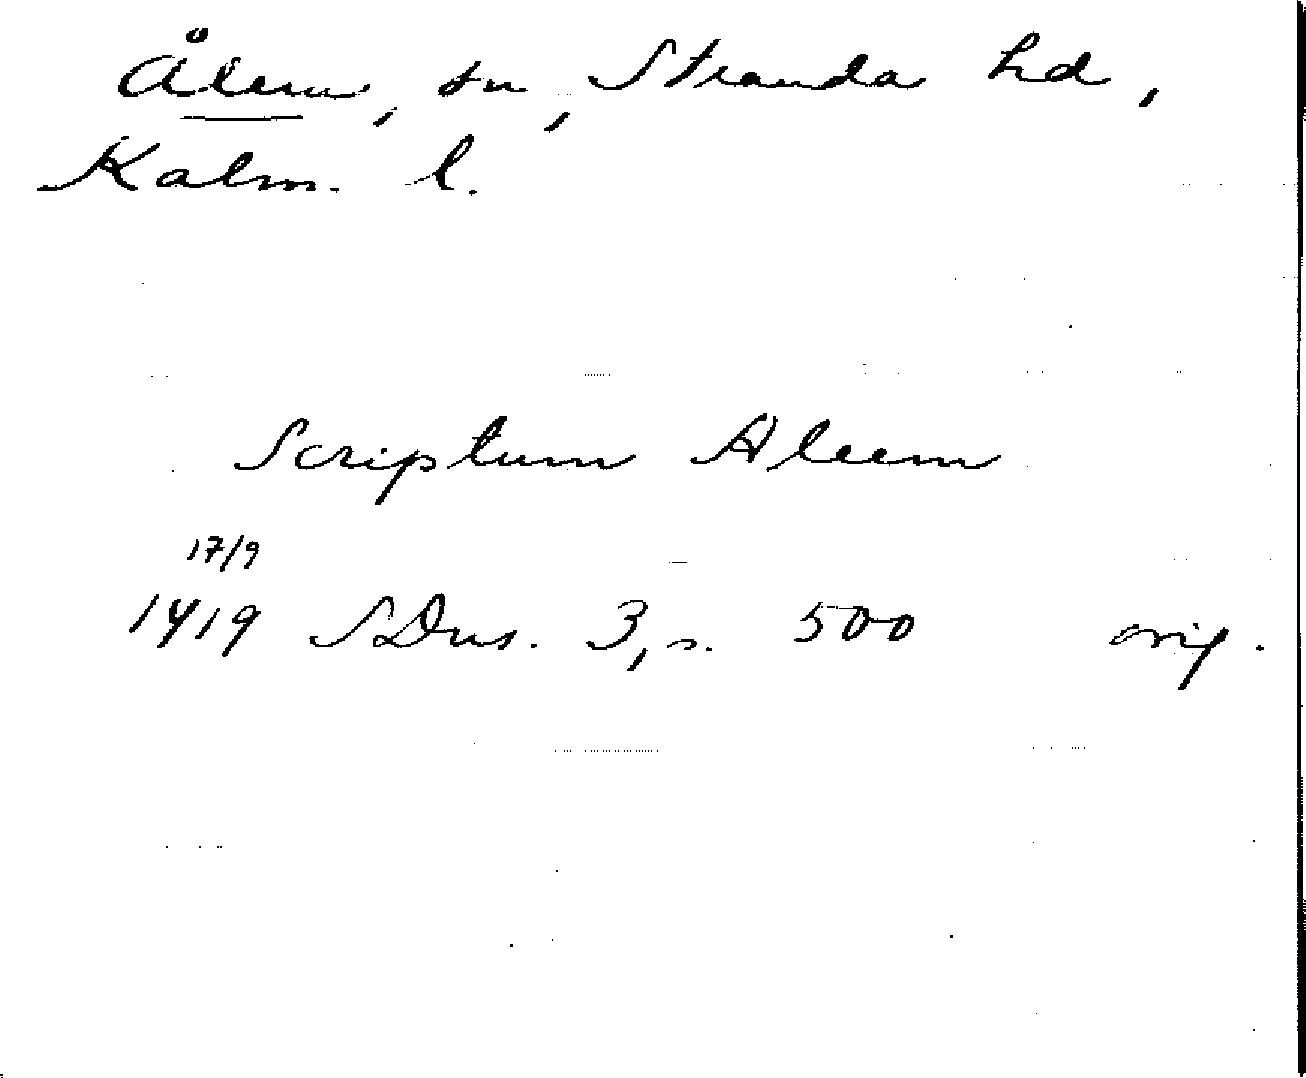 Ålem, sn, Stranda hd,
Kalm. l.
Scriptum Aleem
17/9
1419 SDns. 3, s. 500 orig.